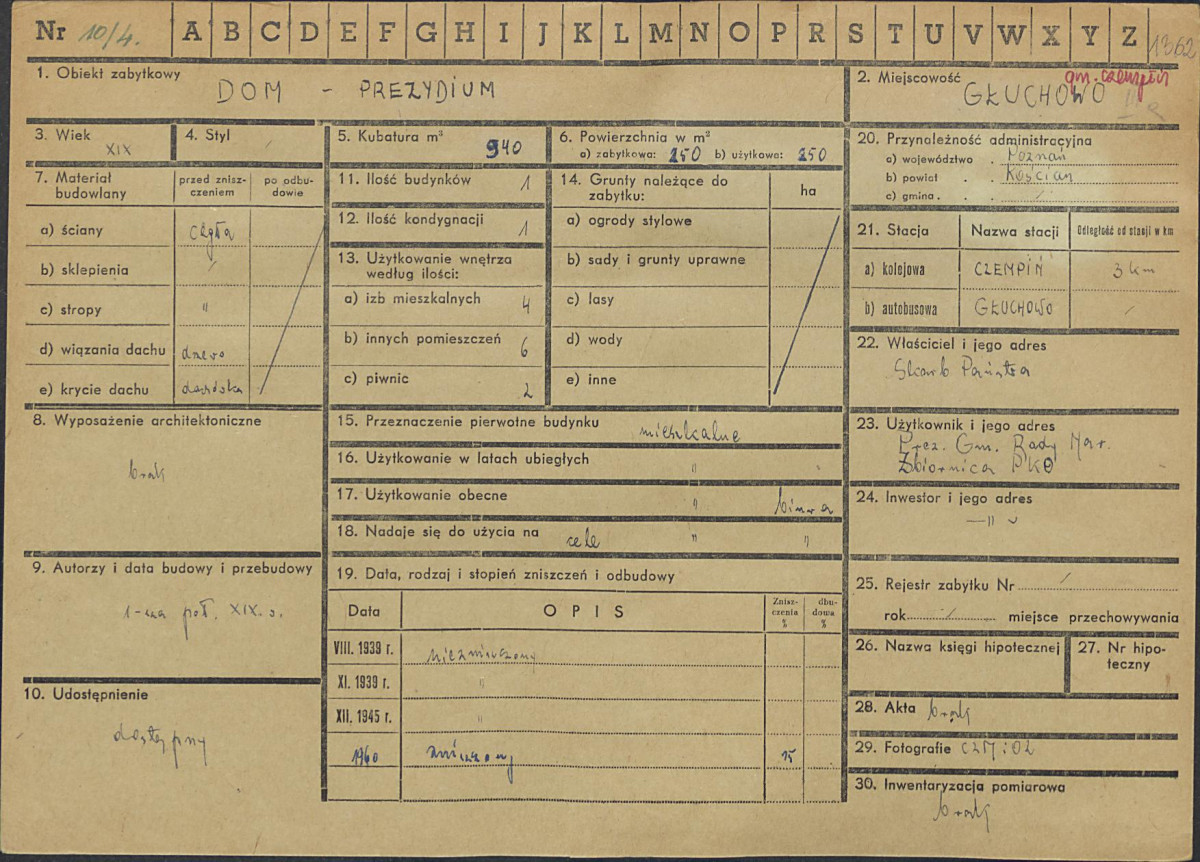 Nr 10/4. A B C D E F G H I J K L M N O P R S T U V W X Y Z 1362
1. Obiekt zabytkowy
DOM - PREZYDIUM
2. Miejscowość
gm. Czempiń
GŁUCHOWO
3. Wiek
XIX
4. Styl
5. Kubatura m³
940
6. Powierzchnia w m²
a) zabytkowa: 250 b) użytkowa: 250
7. Materiał budowlany
przed znisz-
czeniem
po odbu-
dowie
a) ściany cegła
b) sklepienia /
c) stropy "
d) wiązania dachu drzewo
e) krycie dachu dachówka
8. Wyposażenie architektoniczne
brak
9. Autorzy i data budowy i przebudowy
1-sza poł. XIX. w.
10. Udostępnienie
dostępny
11. Ilość budynków 1
12. Ilość kondygnacji 1
13. Użytkowanie wnętrza
według ilości:
a) izb mieszkalnych 4
b) innych pomieszczeń 6
c) piwnic 2
14. Grunty należące do
zabytku:
ha
a) ogrody stylowe
b) sady i grunty uprawne
c) lasy
d) wody
e) inne
15. Przeznaczenie pierwotne budynku mieszkalne
16. Użytkowanie w latach ubiegłych "
17. Użytkowanie obecne " biura
18. Nadaje się do użycia na cele " "
19. Data, rodzaj i stopień zniszczeń i odbudowy
Data
OPIS
Znisz-
czenia
%
dbu-
dowa
%
VIII. 1939 r. niezniszczony
XI. 1939 r. "
XII. 1945 r. "
1960 zniszczony 15
20. Przynależność administracyjna
a) województwo . Poznań
b) powiat . . Kościan
c) gmina . . . /
21. Stacja
Nazwa stacji
Odległość od stacji w km
a) kolejowa CZEMPIŃ 3 km
b) autobusowa GŁUCHOWO /
22. Właściciel i jego adres
Skarb Państwa
23. Użytkownik i jego adres
Prez. Gm. Rady Nar.
Zbiornica PKO
24. Inwestor i jego adres
— " —
25. Rejestr zabytku Nr /
rok / miejsce przechowywania
26. Nazwa księgi hipotecznej
27. Nr hipo-
teczny
28. Akta brak
29. Fotografie CZM i OZ
30. Inwentaryzacja pomiarowa
brak